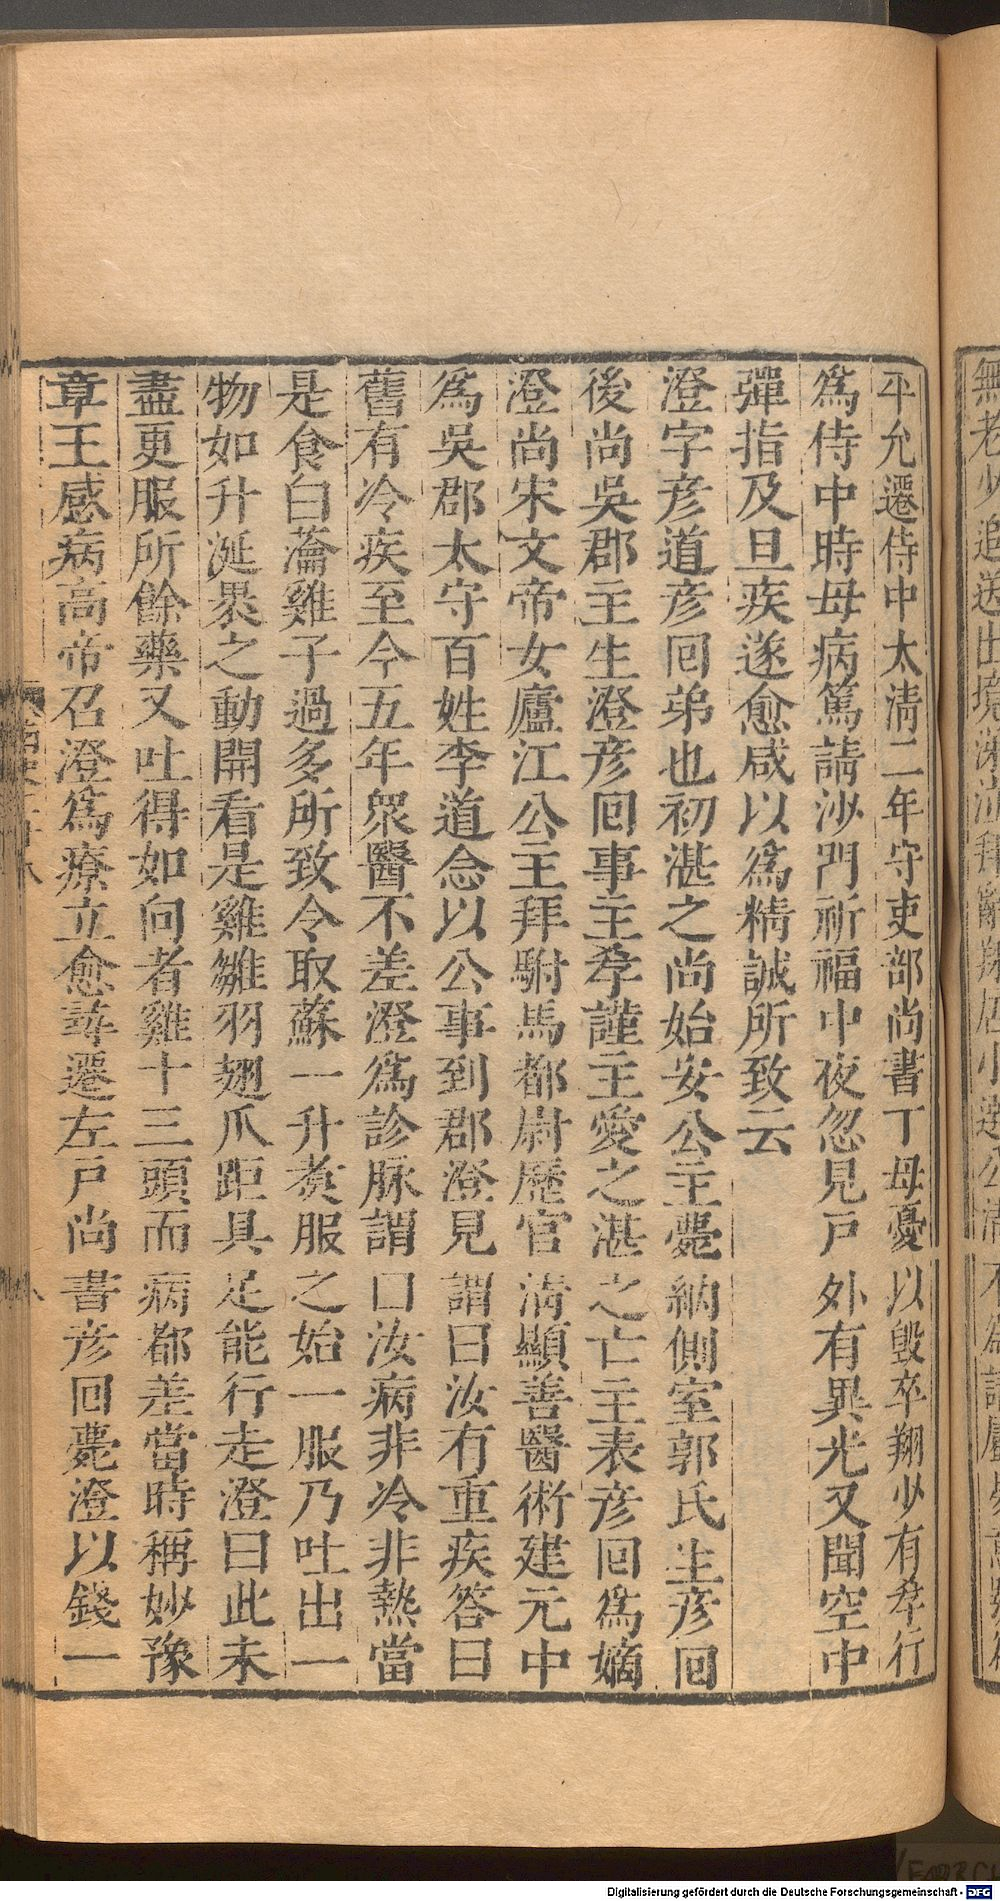 平允遷侍中太清二年守吏部尚書丁母憂以毀卒翔少有孝行
爲侍中時母病篤請沙門祈福中夜忽見戸外有異光又聞空中
彈指及旦疾遂愈咸以爲精誠所致云
澄字彦道彦回弟也初湛之尚始安公主薨納側室郭氏生彦回
後尚吳郡主生澄彦回事主孝謹主愛之湛之亡主表彦回爲嫡
澄尚宋文帝女廬江公主拜駙馬都尉歷官清顯善醫術建元中
爲吳郡太守百姓李道念以公事到郡澄見謂曰汝有重疾答曰
舊有冷疾至今五年衆醫不差澄爲診脉謂曰汝病非冷非熱當
是食白瀹雞子過多所致令取蘇一升煑服之始一服乃吐出一
物如升涎褁之動開看是雞雛羽翅爪距具足能行走澄曰此未
盡更服所餘藥又吐得如向者雞十三頭而病都差當時稱妙豫
章王感病高帝召澄爲療立愈尋遷左戸尚書彦回薨澄以錢一
無老少追送出境涕泣拜辭翔居小選公清不爲請屬易意號
Digitalisierung gefördert durch die Deutsche Forschungsgemeinschaft - DFG